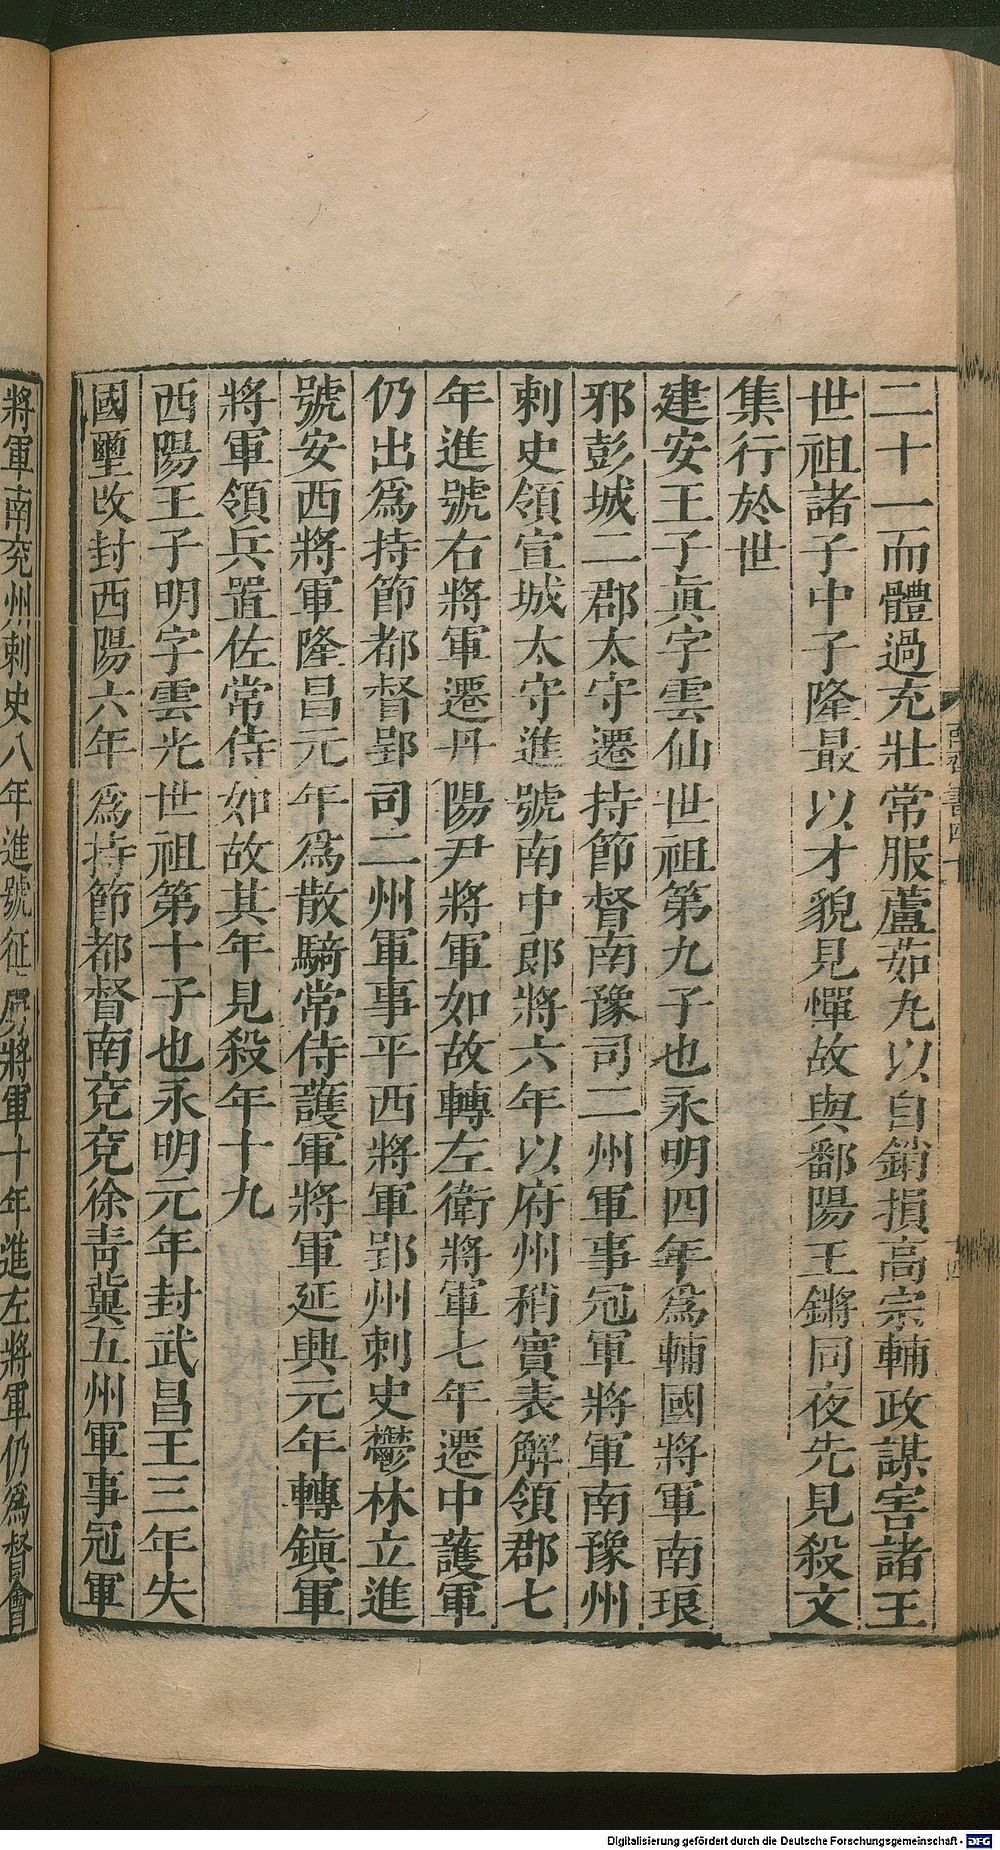 二十一而體過充壯常服蘆茹丸以自銷損高宗輔政謀害諸王
世祖諸子中子隆最以才貌見憚故與鄱陽王鏘同夜先見殺文
集行於世
建安王子眞字雲仙世祖第九子也永明四年爲輔國將軍南琅
邪彭城二郡太守遷持節督南豫司二州軍事冠軍將軍南豫州
刺史領宣城太守進號南中郎將六年以府州稍實表解領郡七
年進號右將軍遷丹陽尹將軍如故轉左衛將軍七年遷中護軍
仍出爲持節都督郢司二州軍事平西將軍郢州刺史鬱林立進
號安西將軍隆昌元年爲散騎常侍護軍將軍延興元年轉鎭軍
將軍領兵置佐常侍如故其年見殺年十九
西陽王子明字雲光世祖第十子也永明元年封武昌王三年失
國璽改封西陽六年爲持節都督南兗兗徐青冀五州軍事冠軍
將軍南兗州刺史八年進號征虜將軍十年進左將軍仍爲督會
Digitalisierung gefördert durch die Deutsche Forschungsgemeinschaft - DFG